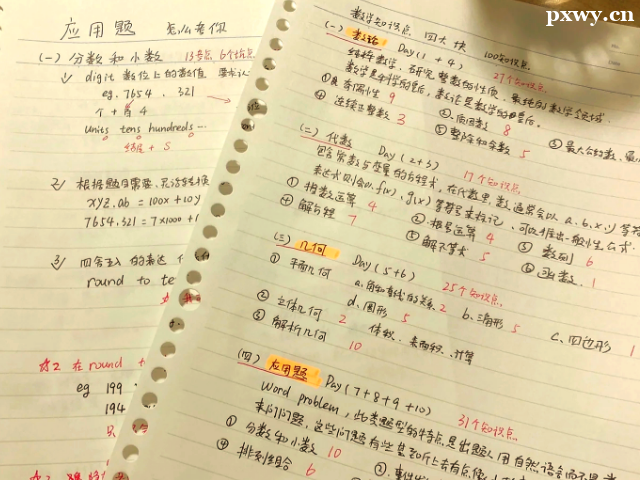 pxwy.cn
应用题 怎么考你
(一) 分数和小数 13考点
1) digit 数位上的数值
eg. 7654.321
个十百 4
units tens hundreds …
结尾 + S
2)
xyz.ab = 100x + 10y
7654.321 = 7×1000 +
3) 四舍五入的表达
round to te
☆2 在 round
eg 199
194
数学知识点 四大块 100知识点
(一) 数论 Day(1 + 4) 27个知识点
纯粹数学,研究整数的性质
数学是科学的皇后,数论是数学的皇后。
① 奇偶性 9 ② 质因数 8 ③ 最大公约数、最
④ 连续正整数 3 ⑤ 整除和余数 5
(二) 代数 Day(2+3) 17个知识点
包含常数与变量的方程式,在代数里,数通常会以 a、b、x、y 等符
f(x)、g(x)
① 指数运算 4 ② 根号运算 4 ③ 数列 6
④ 解方程 7 ⑤ 解不等式 5 ⑥ 函数 1
(三) 几何 Day(5+6) 25个知识点
① 平面几何 a. 角和直线的关系 2 b. 三角形 5 c. 四边形 1
d. 圆形 5
② 立体几何 2 体积、表面积、计算
③ 解析几何 10
(四) 应用题 Day(7+8+9+10) 31个知识点
word problem, 此类题型的特点是出题人用自然语言而不是
来问问题,这些问题有些甚至
① 分数和小数 10
④ 排列组合 6